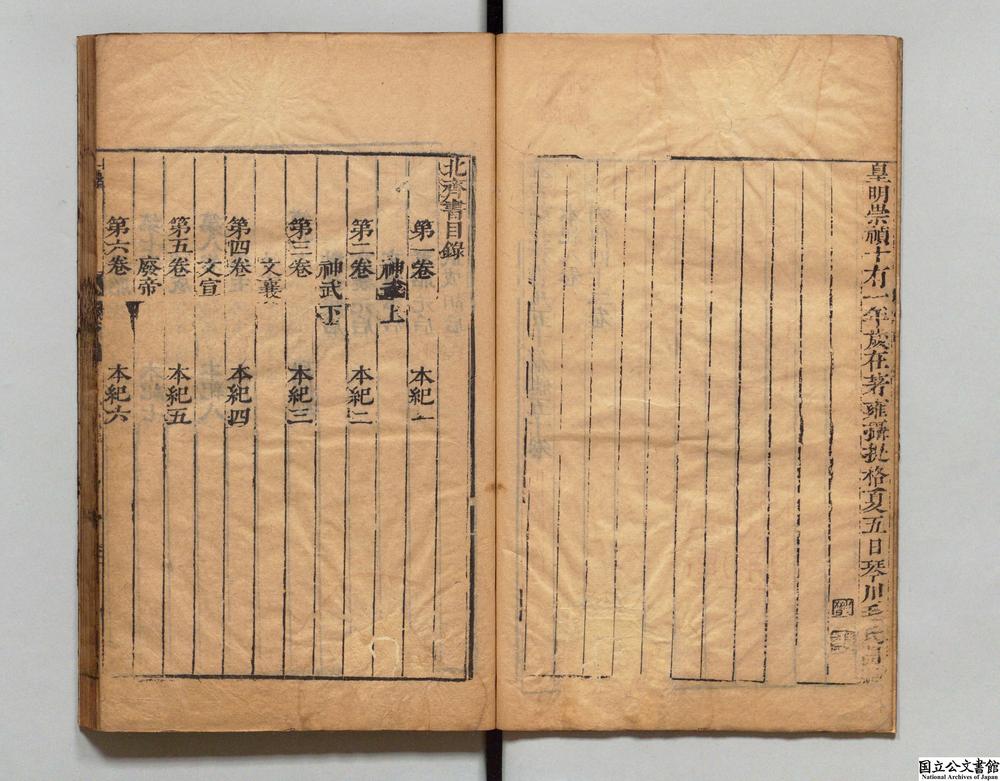 皇明崇禎十有一年歲在著雍攝提格夏五日琴川毛氏
北齊書目錄
第一卷 本紀一
神武上
第二卷 本紀二
神武下
第三卷 本紀三
文襄
第四卷 本紀四
文宣
第五卷 本紀五
廢帝
第六卷 本紀六
国立公文書館
National Archives of Japan